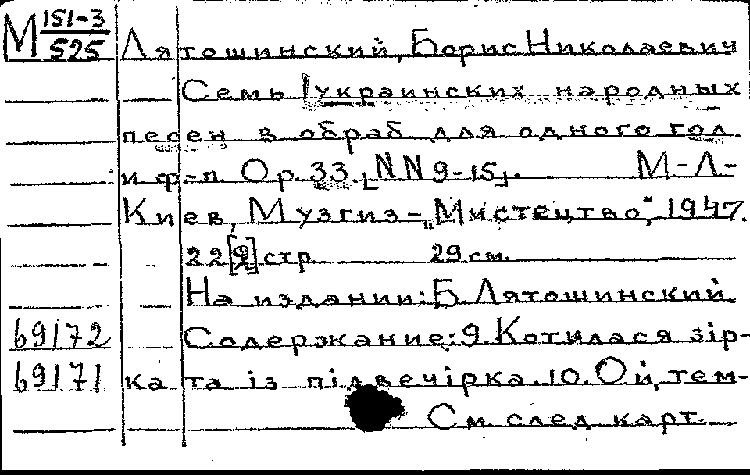 М 151-3/525 Лятошинский, Борис Николаевич
Семь [украинских народных
песен в обраб для одного гол.
и ф-п. Ор. 33. [NN 9-15]. М-Л-
Киев, Музгиз-„Мистецтво“, 1947.
22 [2] стр. 29 см.
На издании: Б. Лятошинский.
69172 Содержание: 9. Котилася зір-
69171 ка та із підвечірка. 10. Ой, тем-
См. след. карт.